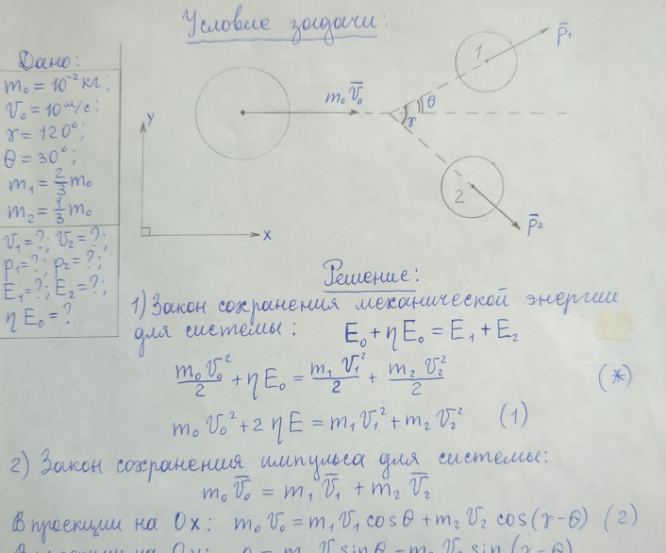 Условие задачи:
Дано:
m₀ = 10⁻² кг;
V₀ = 10 м/с;
γ = 120°;
θ = 30°;
m₁ = 2/3 m₀
m₂ = 1/3 m₀
V₁ = ?; V₂ = ?;
p₁ = ?; p₂ = ?;
E₁ = ?; E₂ = ?;
η E₀ = ?
Y
X
m₀ V̄₀
γ
θ
1
p̄₁
2
p̄₂
Решение:
1) Закон сохранения механической энергии
для системы: E₀ + ηE₀ = E₁ + E₂
m₀V₀²/2 + ηE₀ = m₁V₁²/2 + m₂V₂²/2 (*)
m₀V₀² + 2ηE = m₁V₁² + m₂V₂² (1)
2) Закон сохранения импульса для системы:
m₀V̄₀ = m₁V̄₁ + m₂V̄₂
В проекции на Ox: m₀V₀ = m₁V₁cosθ + m₂V₂ cos(γ-θ) (2)